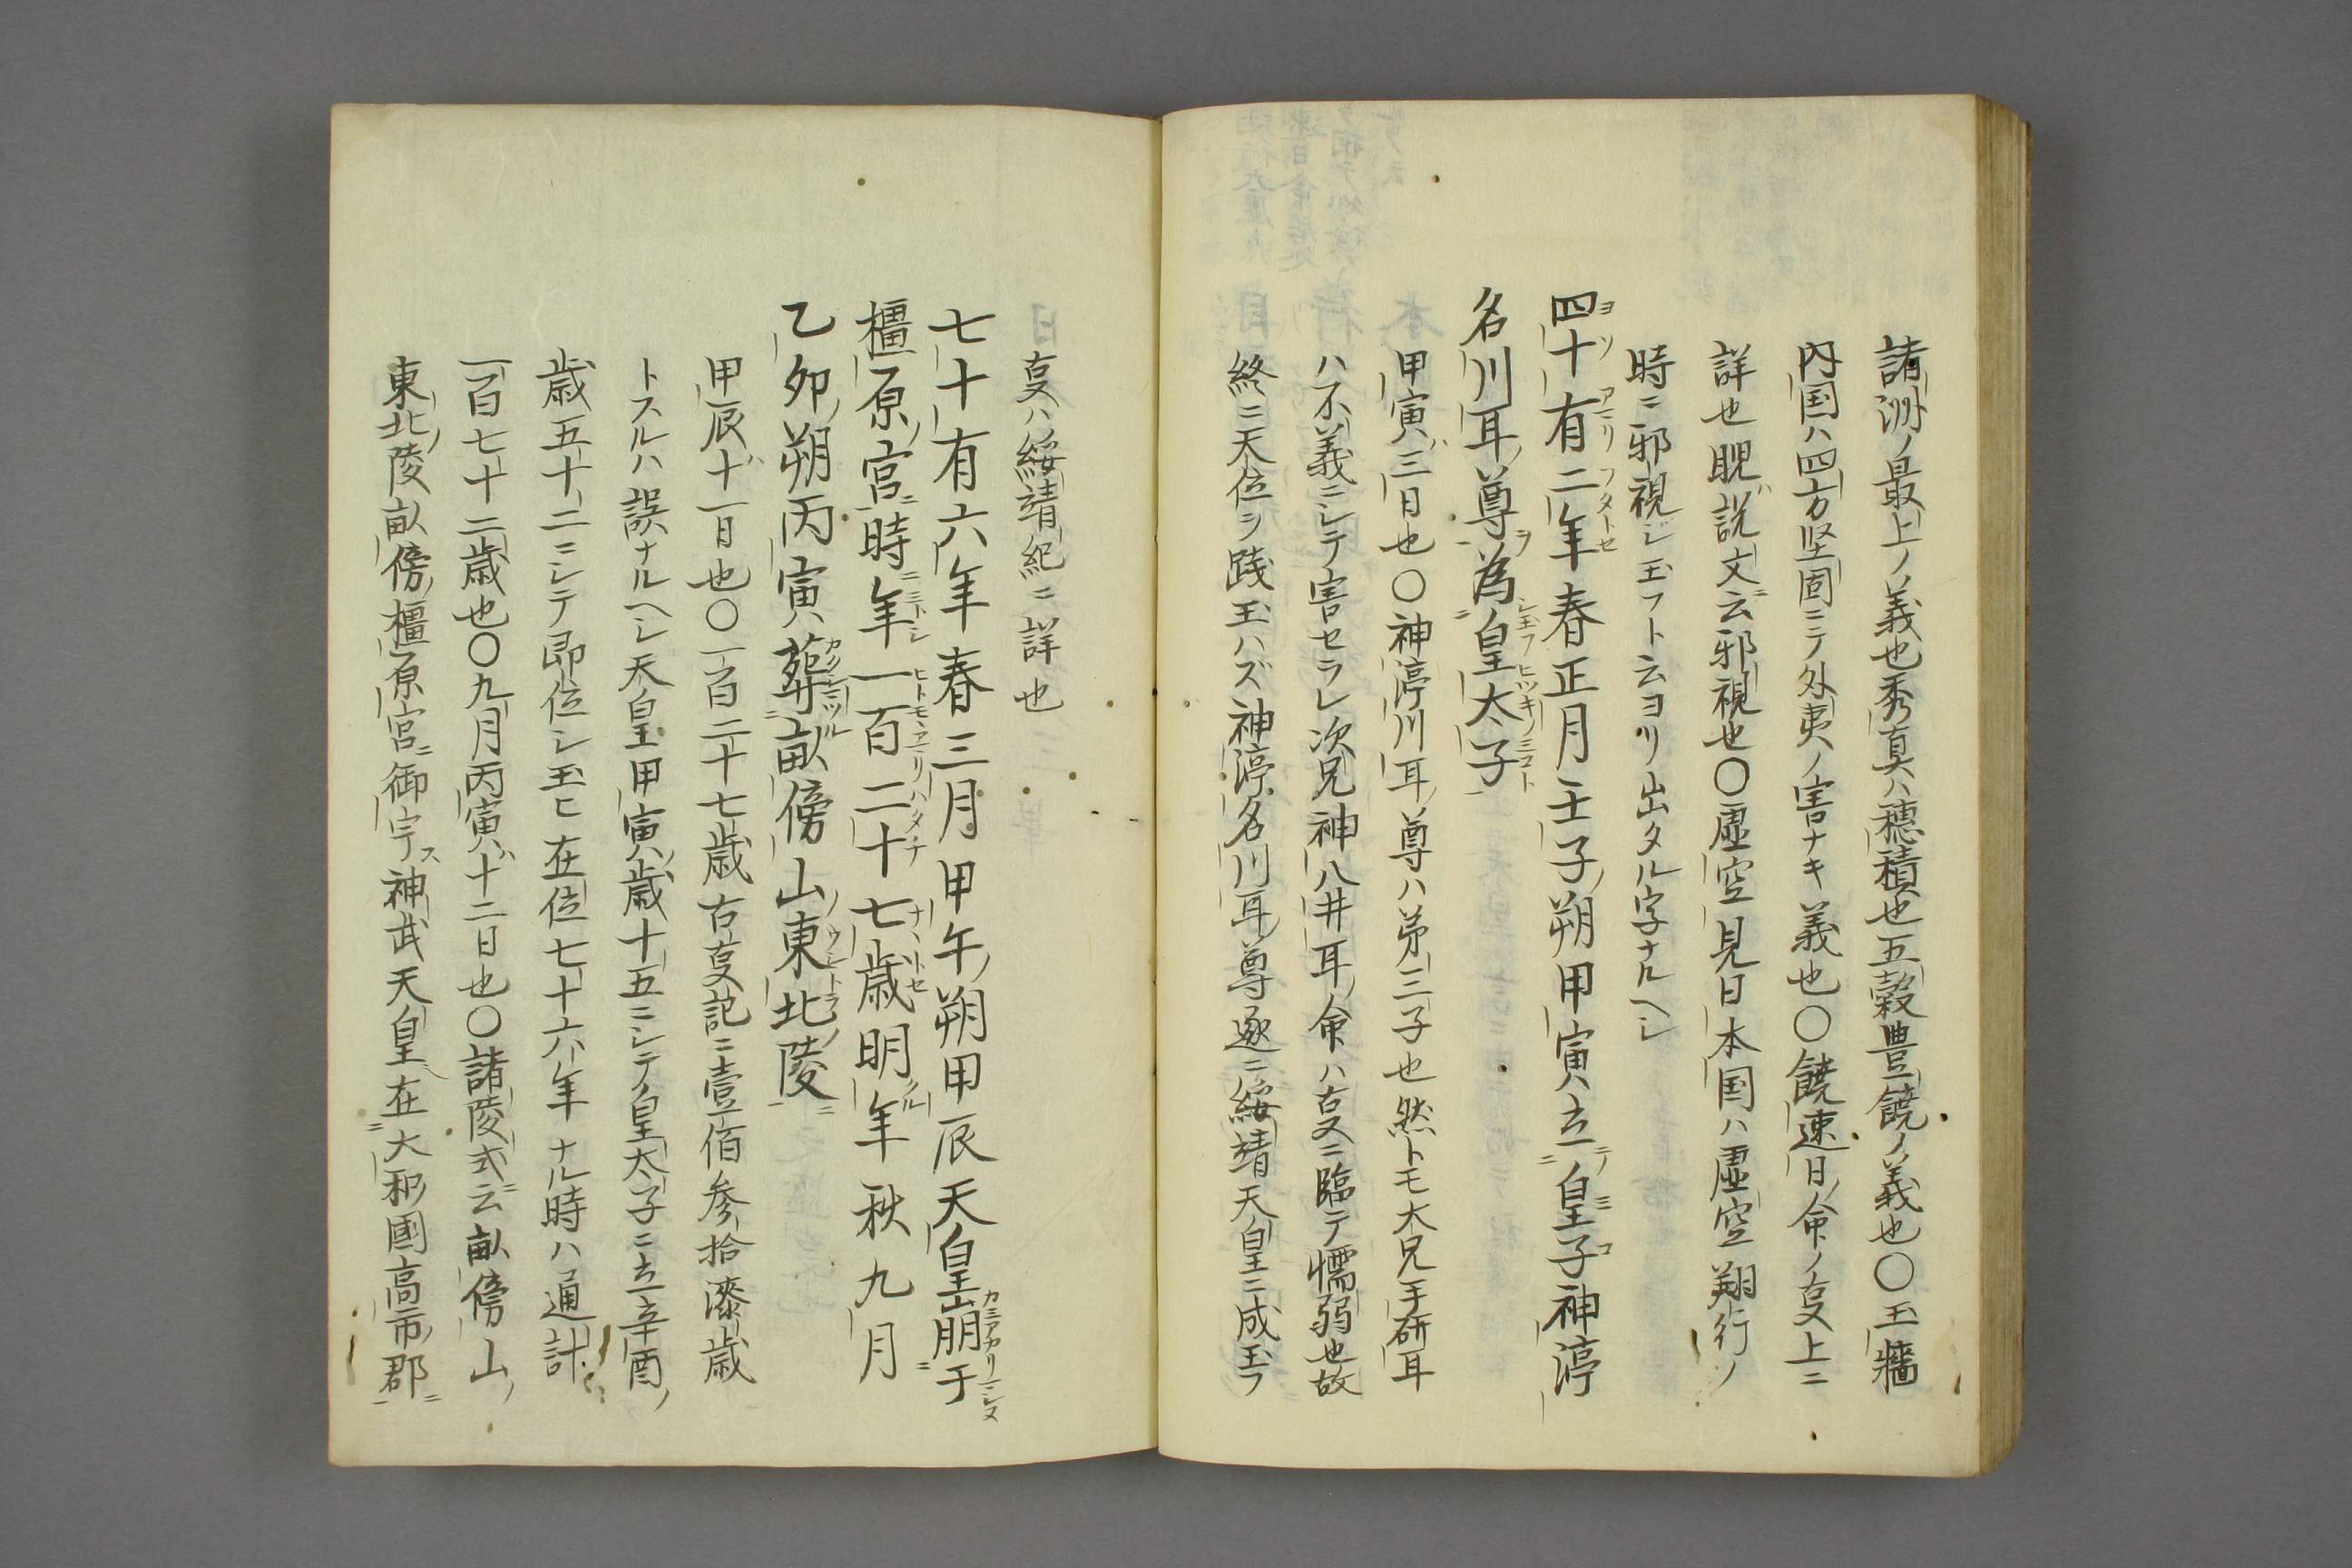 諸洲ノ最上ノ義也秀真ハ穂積也五穀豊饒ノ義也〇玉牆
内国ハ四方堅固ニテ外夷ノ害ナキ義也〇饒速日命ノ叓上ニ
詳也睨説文云邪視也〇虚空見日本国ハ虚空翔行ノ
時ニ邪視シ玉フト云ヨリ出タル字ナルヘシ
四十有二年春正月壬子朔甲寅立皇子神渟
名川耳尊為皇太子
甲寅ハ三日也〇神渟川耳尊ハ第三子也然トモ太兄手研耳
ハ不義ニシテ害セラレ次兄神八井耳命ハ叓ニ臨テ懦弱也故
終ニ天位ヲ践玉ハズ神渟名川耳尊遂ニ綏靖天皇ニ成玉フ
叓ハ綏靖紀ニ詳也
七十有六年春三月甲午朔甲辰天皇崩于
橿原宮時年一百二十七歳明年秋九月
乙卯朔丙寅葬畝傍山東北陵
甲辰ハ十一日也〇一百二十七歳古叓記ニ壹佰参拾漆歳
トスルハ誤ナルヘシ天皇甲寅ノ歳十五ニシテ皇太子ニ立辛酉ノ
歳五十二ニシテ即位シ玉ヒ在位七十六年ナル時ハ通計
一百七十二歳也〇九月丙寅ハ十二日也〇諸陵式云畝傍山ノ
東北ノ陵畝傍橿原宮ニ御宇ス神武天皇在大和國高市郡